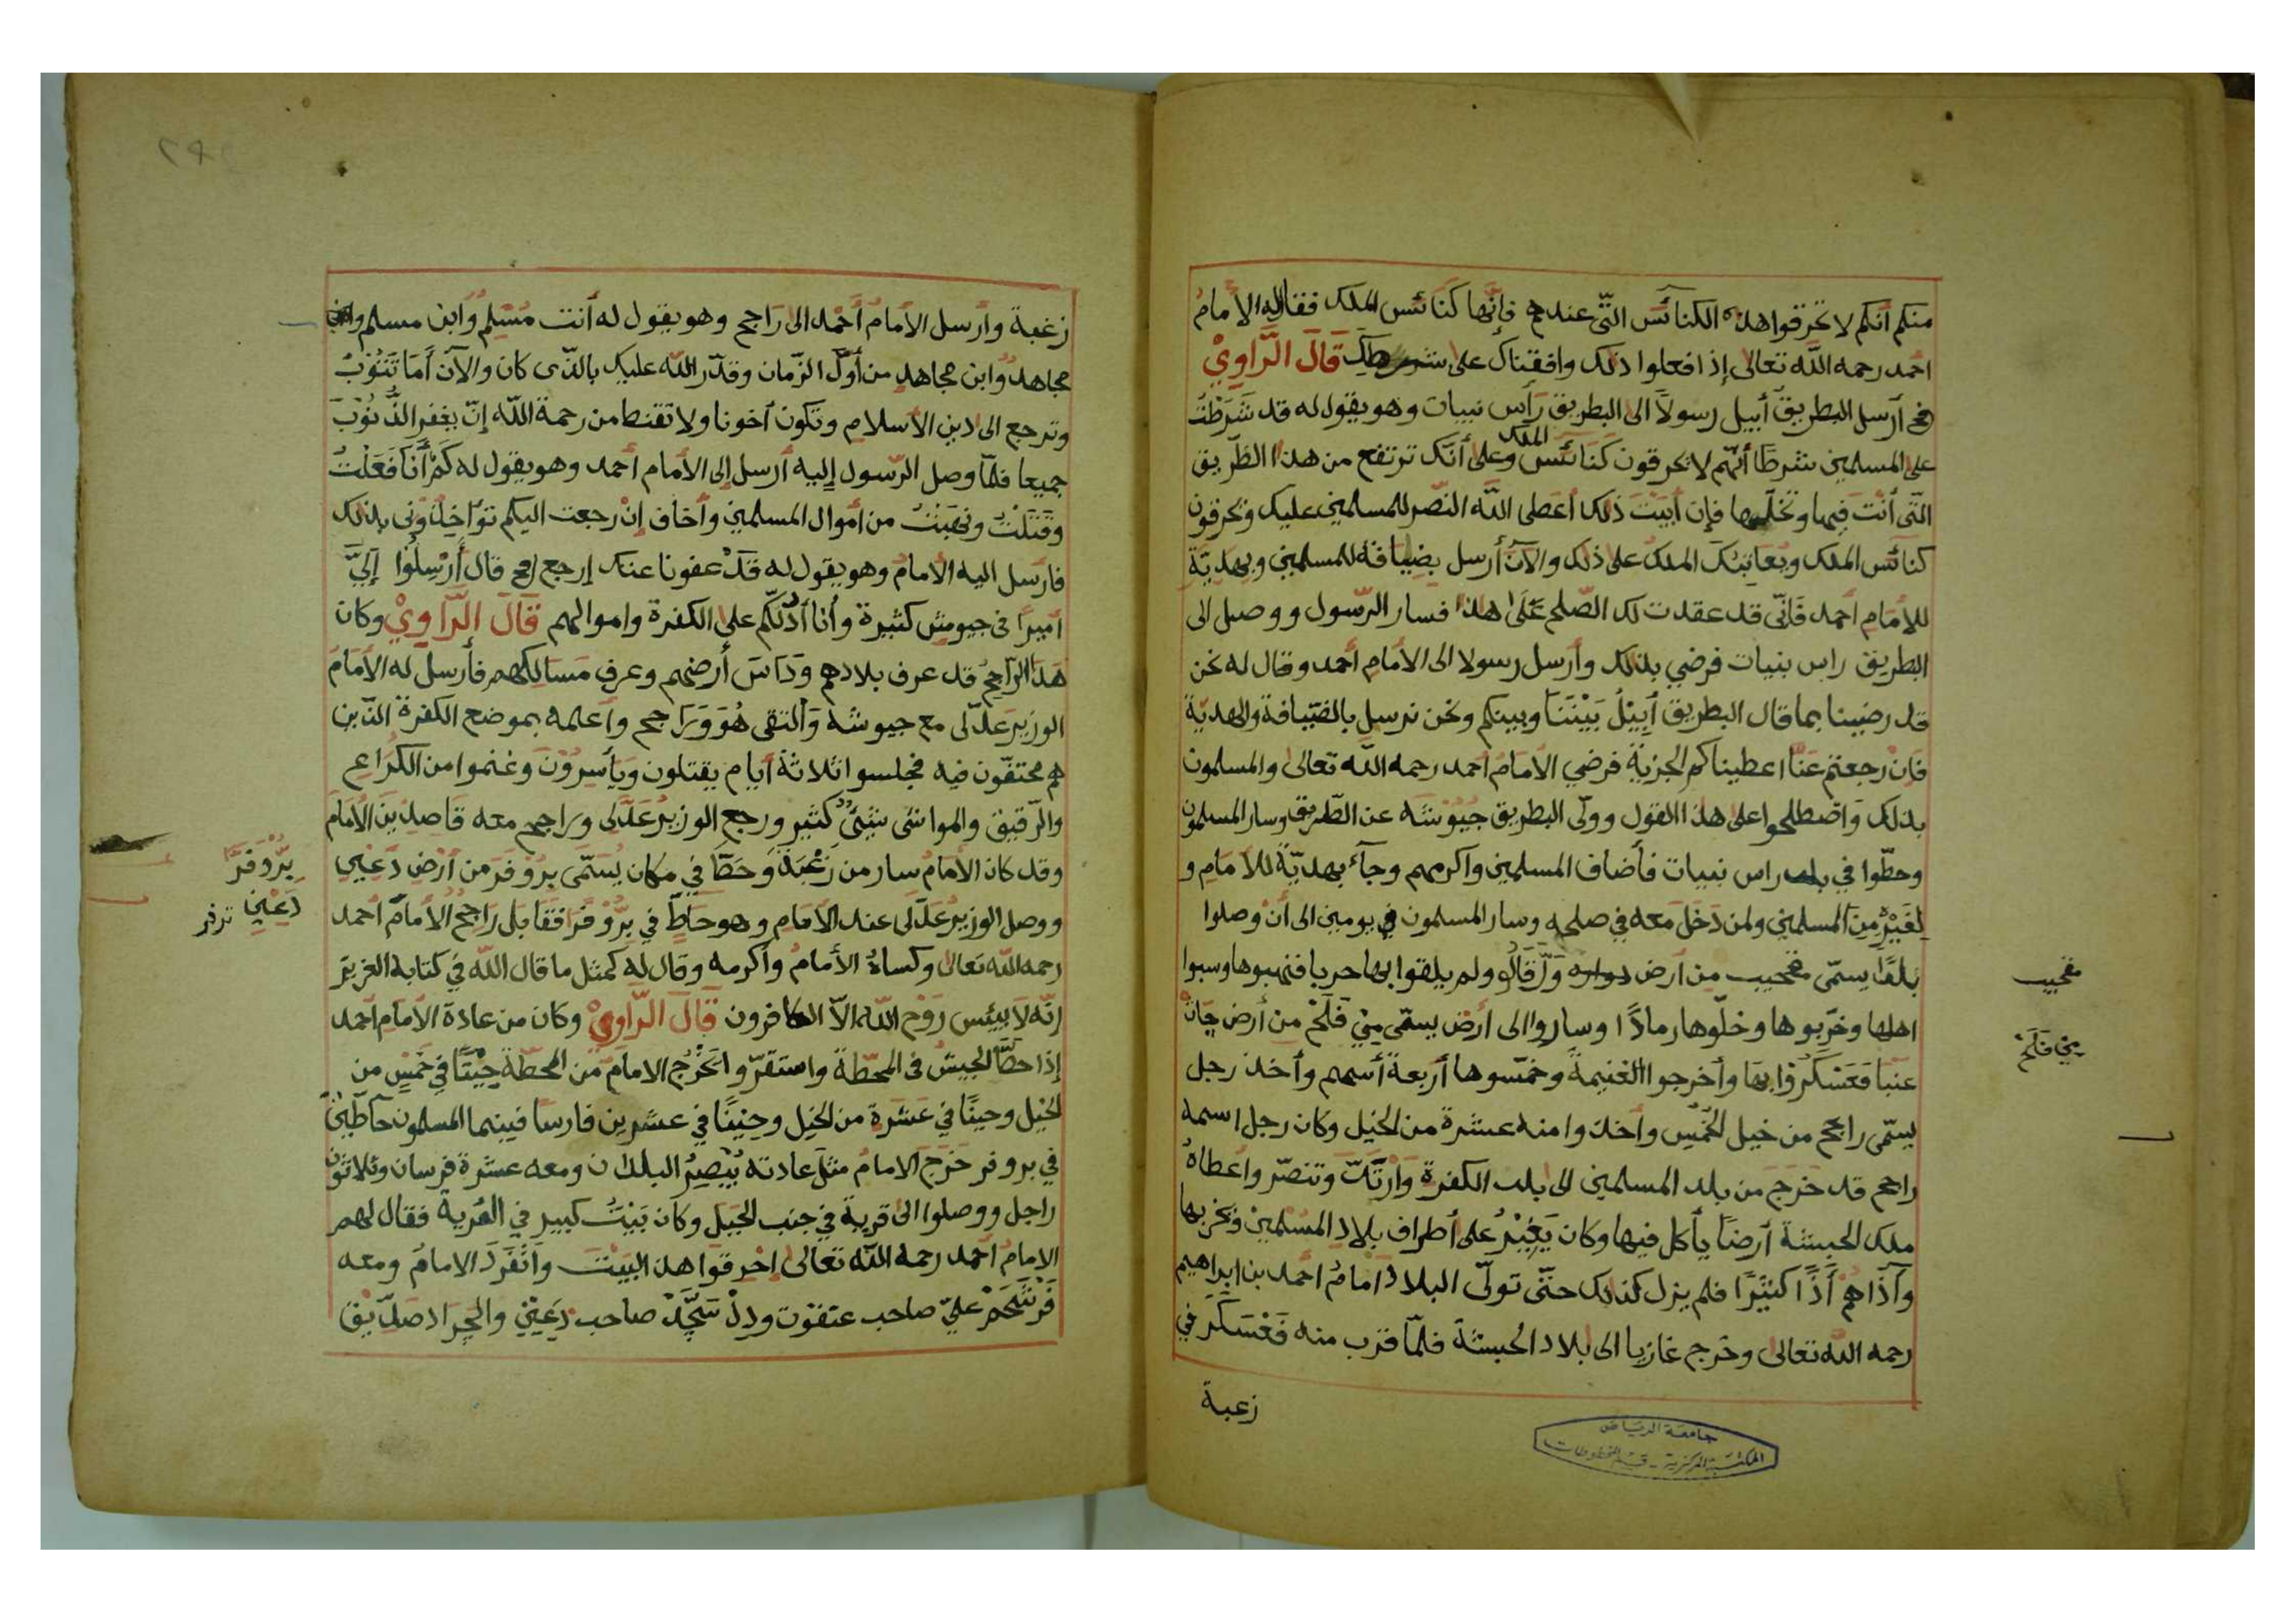 منكم أنكم لا تحرقوا هذه الكنائس التي عندهم فإنها كنائس الملك فقال له الأمام
احمد رحمه الله تعالى إذا فعلوا ذلك وافقناك على شرطك قال الراوي
فح أرسل البطريق أبيل رسولا الى البطريق رأس نبيات وهو يقول له قد شرطت
على المسلمين شرطا أنهم لا يحرقون كنائس الملك وعلى أنك ترتفع من هذا الطريق
التي أنت فيها وتخليها فإن أبيت ذلك أعطى الله النصر للمسلمين عليك ويحرقون
كنائس الملك ويعاتبك الملك على ذلك والآن أرسل بضيافة للمسلمين وبهدية
للأمام أحمد فأني قد عقدت لك الصلح على هذا فسار الرسول ووصل الى
البطريق راس بنيات فرضي بذلك وأرسل رسولا الى الأمام أحمد وقال له نحن
قد رضينا بما قال البطريق أبيل بيننا وبينكم ونحن نرسل بالضيافة والهدية
فان رجعتم عنا اعطيناكم الجزية فرضي الأمام أحمد رحمه الله تعالى والمسلمون
بذلك واصطلحوا على هذا القول وولى البطريق جيوشه عن الطريق وسار المسلمون
وحطوا في بلد راس نبيات فأضاف المسلمين وأكرمهم وجاء بهدية للأمام و
لغيره من المسلمين ولمن دخل معه في صلحه وسار المسلمون في يومين الى أن وصلوا
بلدا يسمى مقحيب من أرض دواره ولم يلقوا بها حربا فنهبوها وسبوا
اهلها وخربوها وخلوها رمادا وساروا الى أرض يسمى مين فلح من أرض جان
عنبا فعسكروا بها وأخرجوا الغنيمة وخمسوها أربعة أسهم وأخذ رجل
يسمى راجح من خيل الخمس وأخذوا منه عشرة من الخيل وكان رجل اسمه
راجح قد خرج من بلد المسلمين الى بلد الكفرة وارتد وتنصر واعطاه
ملك الحبشة أرضا يأكل فيها وكان يغير على أطراف بلاد المسلمين ويخربها
وآذاهم أذا كثيرا فلم يزل كذلك حتى تولى البلاد امام أحمد بن ابراهيم
رحمه الله تعالى وخرج غازيا الى بلاد الحبشة فلما قرب منه فعسكر في
زعبة
مقحيب
مين فلح
جامعة الرياض
المكتبة المركزية - قسم المخطوطات
زغبة وأرسل الأمام أحمد الى راجح وهو يقول له أنت مسلم وابن مسلم وانت
مجاهد وابن مجاهد من أول الزمان وقدر الله عليك بالذى كان والآن أما تتوب
وترجع الى دين الأسلام وتكون أخونا ولا تقنط من رحمة الله إن يغفر الذنوب
جميعا فلما وصل الرسول إليه أرسل إلى الأمام أحمد وهو يقول له كم أنا فعلت
وقتلت ونهبت من أموال المسلمين وأخاف إن رجعت اليكم تواخذوني بذلك
فارسل اليه الأمام وهو يقول له قد عفونا عنك إرجع فح قال أرسلوا إلي
أميرا في جيوش كثيرة وأنا أدلكم على الكفرة واموالهم قال الراوي وكان
هذا الراجح قد عرف بلادهم وداس أرضهم وعرف مسالكهم فأرسل له الأمام
الوزير عدلى مع جيوشه والتقى هو وراجح وأعلمه بموضع الكفرة الذين
هم محتفون فيه فجلسوا ثلاثة أيام يقتلون ويأسرون وغنموا من الكراع
والرقيق والمواشى شيئ كثير ورجع الوزير عدلى وراجح معه قاصدين الأمام
وقد كان الأمام سار من زغبة وحط في مكان يسمى بروفر من أرض دعيي
ووصل الوزير عدلى عند الأمام وهو حاط في بروفر افقابل راجح الأمام أحمد
رحمه الله تعالى وكساه الأمام وأكرمه وقال له كمثل ما قال الله في كتابه العزيز
انه لا ييئس روح الله الا الكافرون قال الراوي وكان من عادة الأمام أحمد
إذا حط الجيش في المحطة واستقروا يخرج الامام من المحطة حينا في خمس من
الخيل وحينا في عشرة من الخيل وحينا في عشرين فارسا فبينما المسلمون حاطين
في بروفر خرج الامام مثل عادته يبصر البلدان ومعه عشرة فرسان وثلاثون
راجل ووصلوا الى قرية في جنب الجبل وكان بيت كبير في القرية فقال لهم
الامام أحمد رحمه الله تعالى إحرقوا هذا البيت وانفرد الامام ومعه
فرشحم علي صاحب عنقوت ودل سجد صاحب دعين والجراد صديق
بروفر
دعين